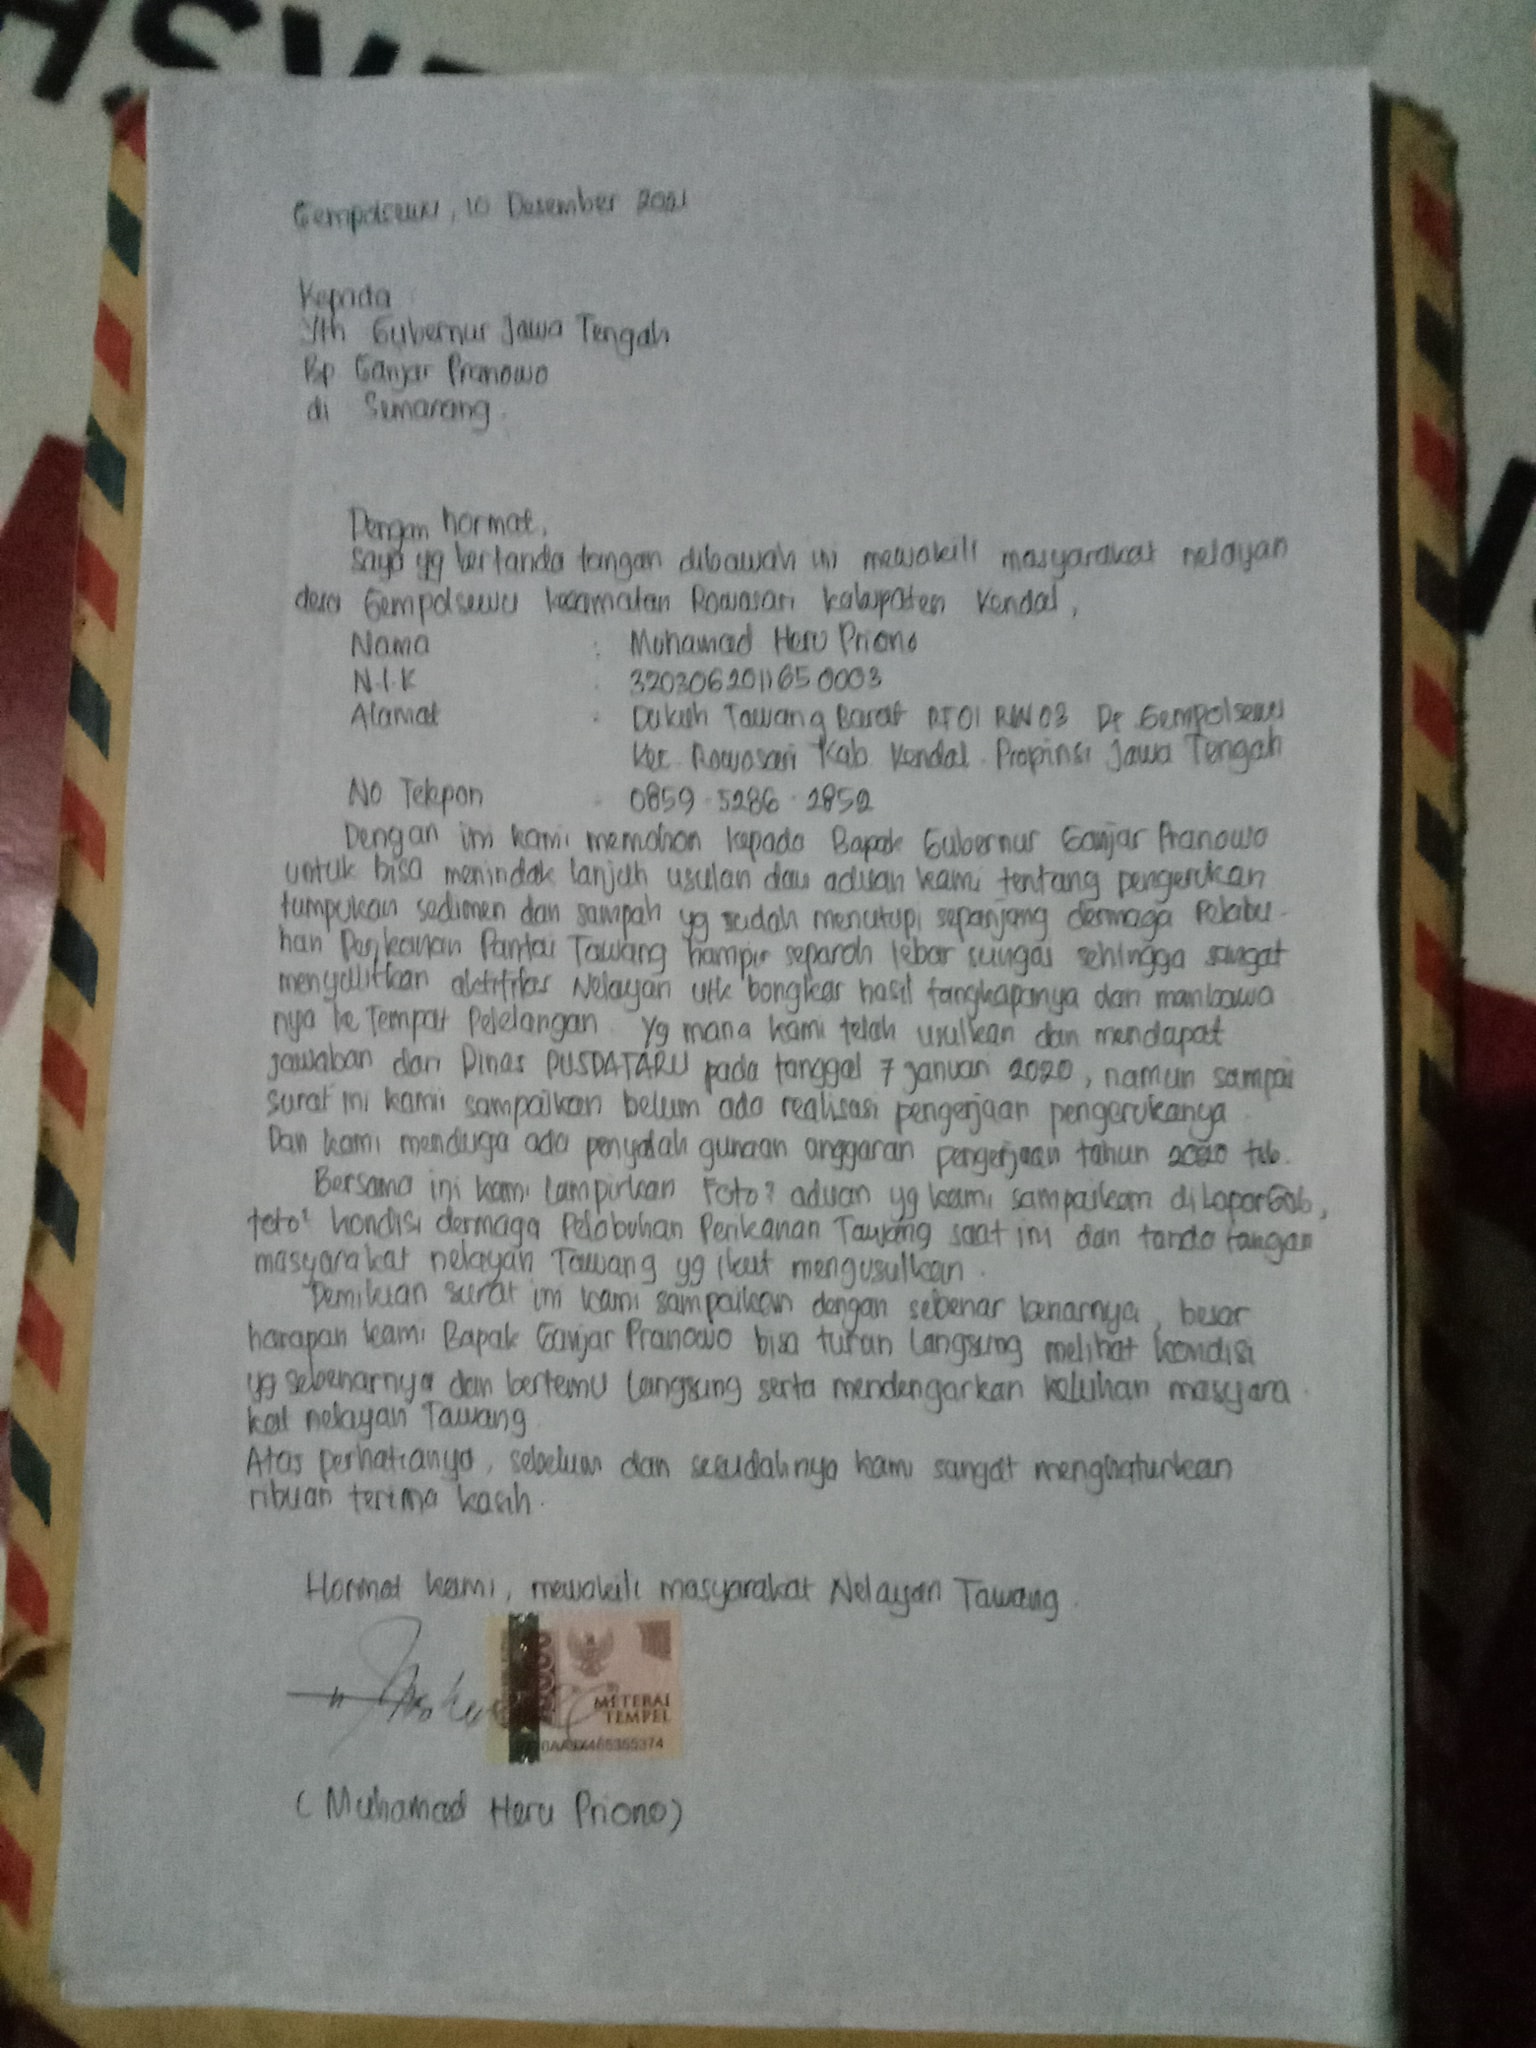 Gempolsewu, 10 Desember 2021
Kepada
Yth Gubernur Jawa Tengah
Bp Ganjar Pranowo
di Semarang.
Dengan hormat,
Saya yg bertanda tangan dibawah ini mewakili masyarakat nelayan
desa Gempolsewu kecamatan Rowosari kabupaten Kendal,
Nama : Muhamad Heru Priono
N.I.K : 3203062011650003
Alamat : Dukuh Tawang Barat RT01 RW03 Ds Gempolsewu
Kec. Rowosari Kab. Kendal. Propinsi Jawa Tengah
No Telepon : 0859-5286-2852
Dengan ini kami memohon kepada Bapak Gubernur Ganjar Pranowo
untuk bisa menindak lanjuti usulan dan aduan kami tentang pengerukan
tumpukan sedimen dan sampah yg sudah menutupi sepanjang dermaga Pelabu-
han Perikanan Pantai Tawang hampir separoh lebar sungai sehingga sangat
menyulitkan aktifitas Nelayan utk bongkar hasil tangkapanya dan membawa
nya ke Tempat Pelelangan. Yg mana kami telah usulkan dan mendapat
jawaban dari Dinas PUSDATARU pada tanggal 7 januari 2020, namun sampai
surat ini kami sampaikan belum ada realisasi pengerjaan pengerukanya.
Dan kami menduga ada penyalah gunaan anggaran pengerjaan tahun 2020 tsb.
Bersama ini kami lampirkan Foto² aduan yg kami sampaikan di LaporGub,
foto² kondisi dermaga Pelabuhan Perikanan Tawang saat ini dan tanda tangan
masyarakat nelayan Tawang yg ikut mengusulkan.
Demikian surat ini kami sampaikan dengan sebenar benarnya, besar
harapan kami Bapak Ganjar Pranowo bisa turun langsung melihat kondisi
yg sebenarnya dan bertemu langsung serta mendengarkan keluhan masyara-
kat nelayan Tawang.
Atas perhatianya, sebelum dan sesudahnya kami sangat menghaturkan
ribuan terima kasih.
Hormat kami, mewakili masyarakat Nelayan Tawang.
METERAI
TEMPEL
(Muhamad Heru Priono)